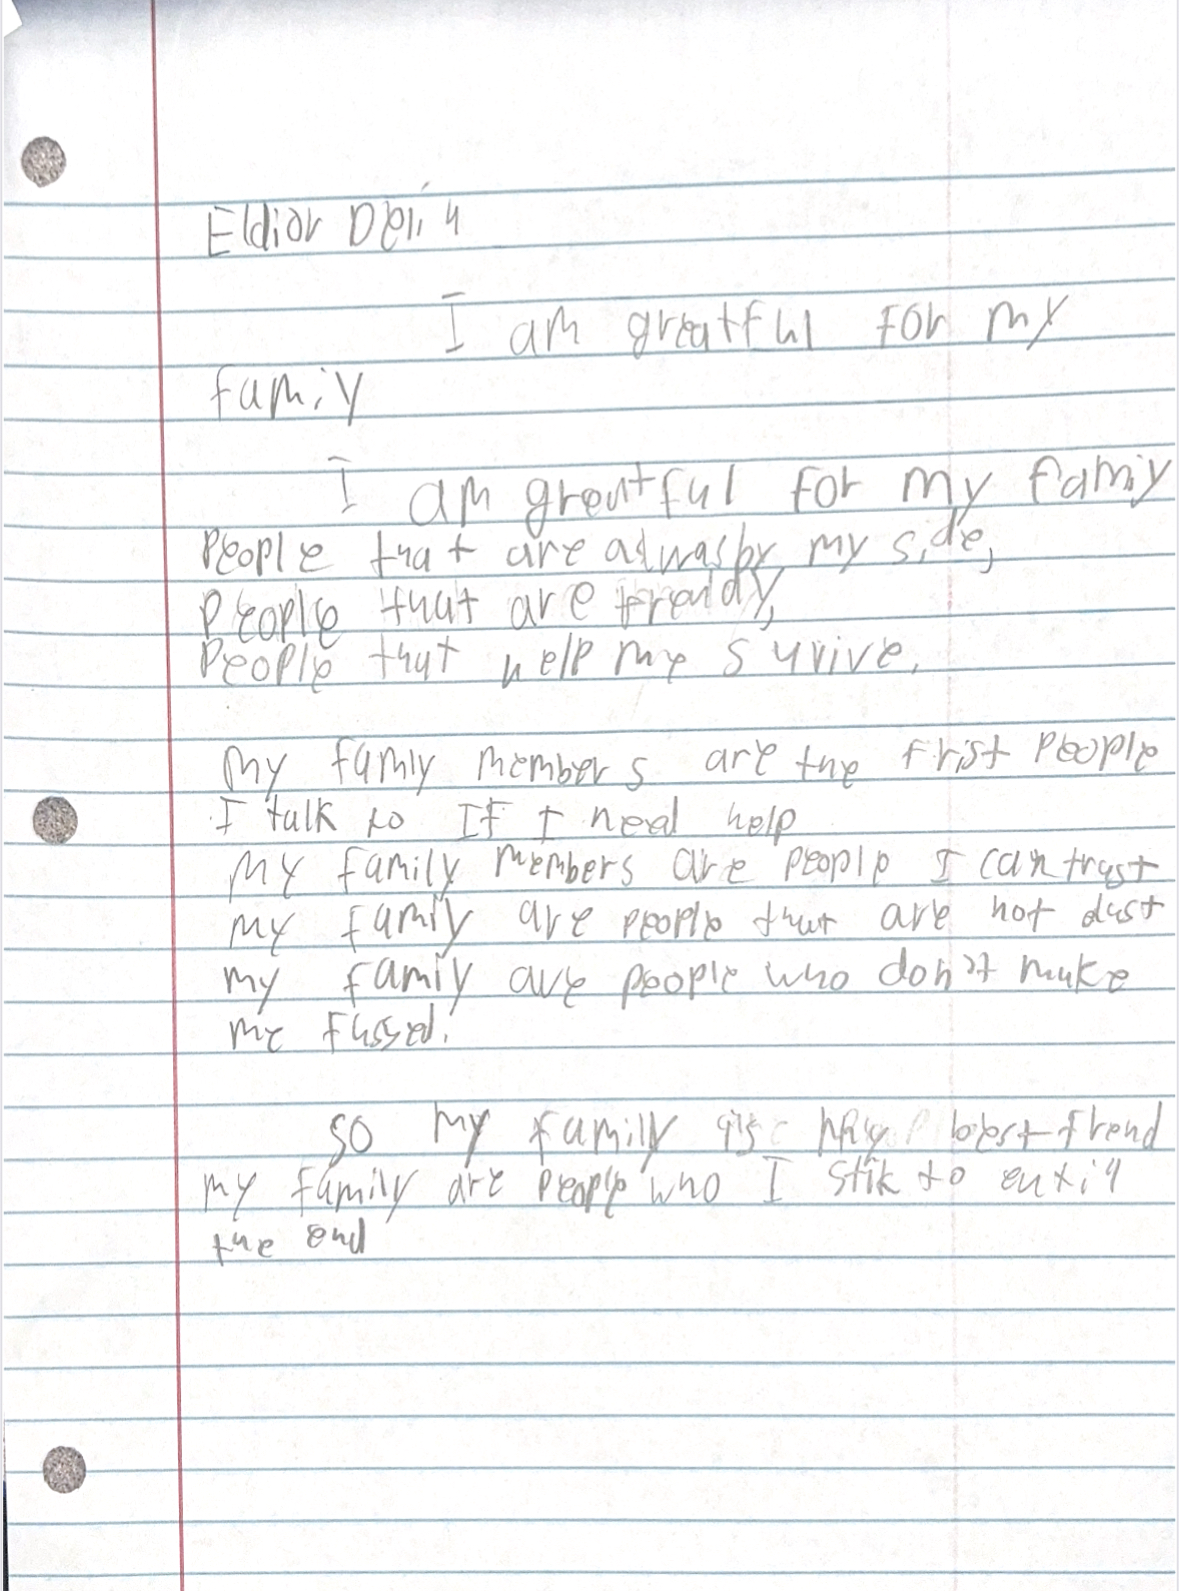 Eldior
I am greatful for my
famiy
I am greatful for my famiy
People that are adwas by my side,
people that are frendy,
People that help me survive.
my famly members are the frist people
I talk to If I need help
my family members are people I can trust
my family are people that are not dust
my family are people who don't make
me fussed.
so my family best frend
my family are people who I stik to
the end